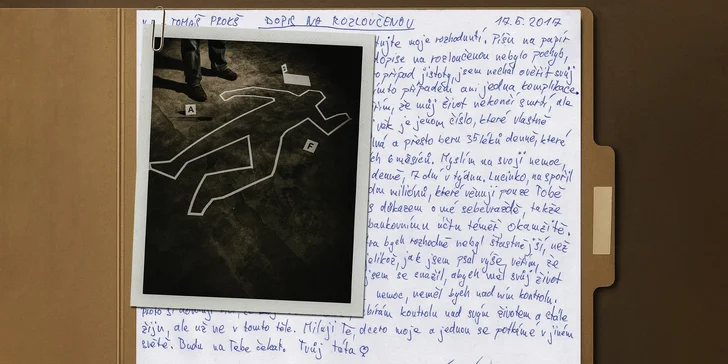 TOMÁŠ PROKŠ DOPIS NA ROZLOUČENOU 17.6.2017
moje rozhodnutí. Píšu na papír
dopise na rozloučenou nebylo pochyb,
o případ jistoty, jsem nechal ověřit svůj
tímto případem ani jedna komplikace.
že můj život nekončí smrtí, ale
věk je jenom číslo, které vlastně
a přesto beru 35 léků denně, které
6 měsících. Myslím na svoji nemoc,
denně, 7 dní v týdnu. Lucinko, naspořil
milionů, které věnuji pouze Tobě
s důkazem o mé sebevraždě, takže
bankovnímu účtu téměř okamžitě.
bych rozhodně nebyl šťastnější, než
jelikož, jak jsem psal výše, věřím, že
jsem se snažil, abych měl svůj život
nemoc, neměl bych nad ním kontrolu.
kontrolu nad svým životem a stále
žiju, ale už ne v tomto těle. Miluji Tě, dcero moje a jednou se potkáme v jiném
světě. Budu na Tebe čekat. Tvůj táta ♡
A
B
F